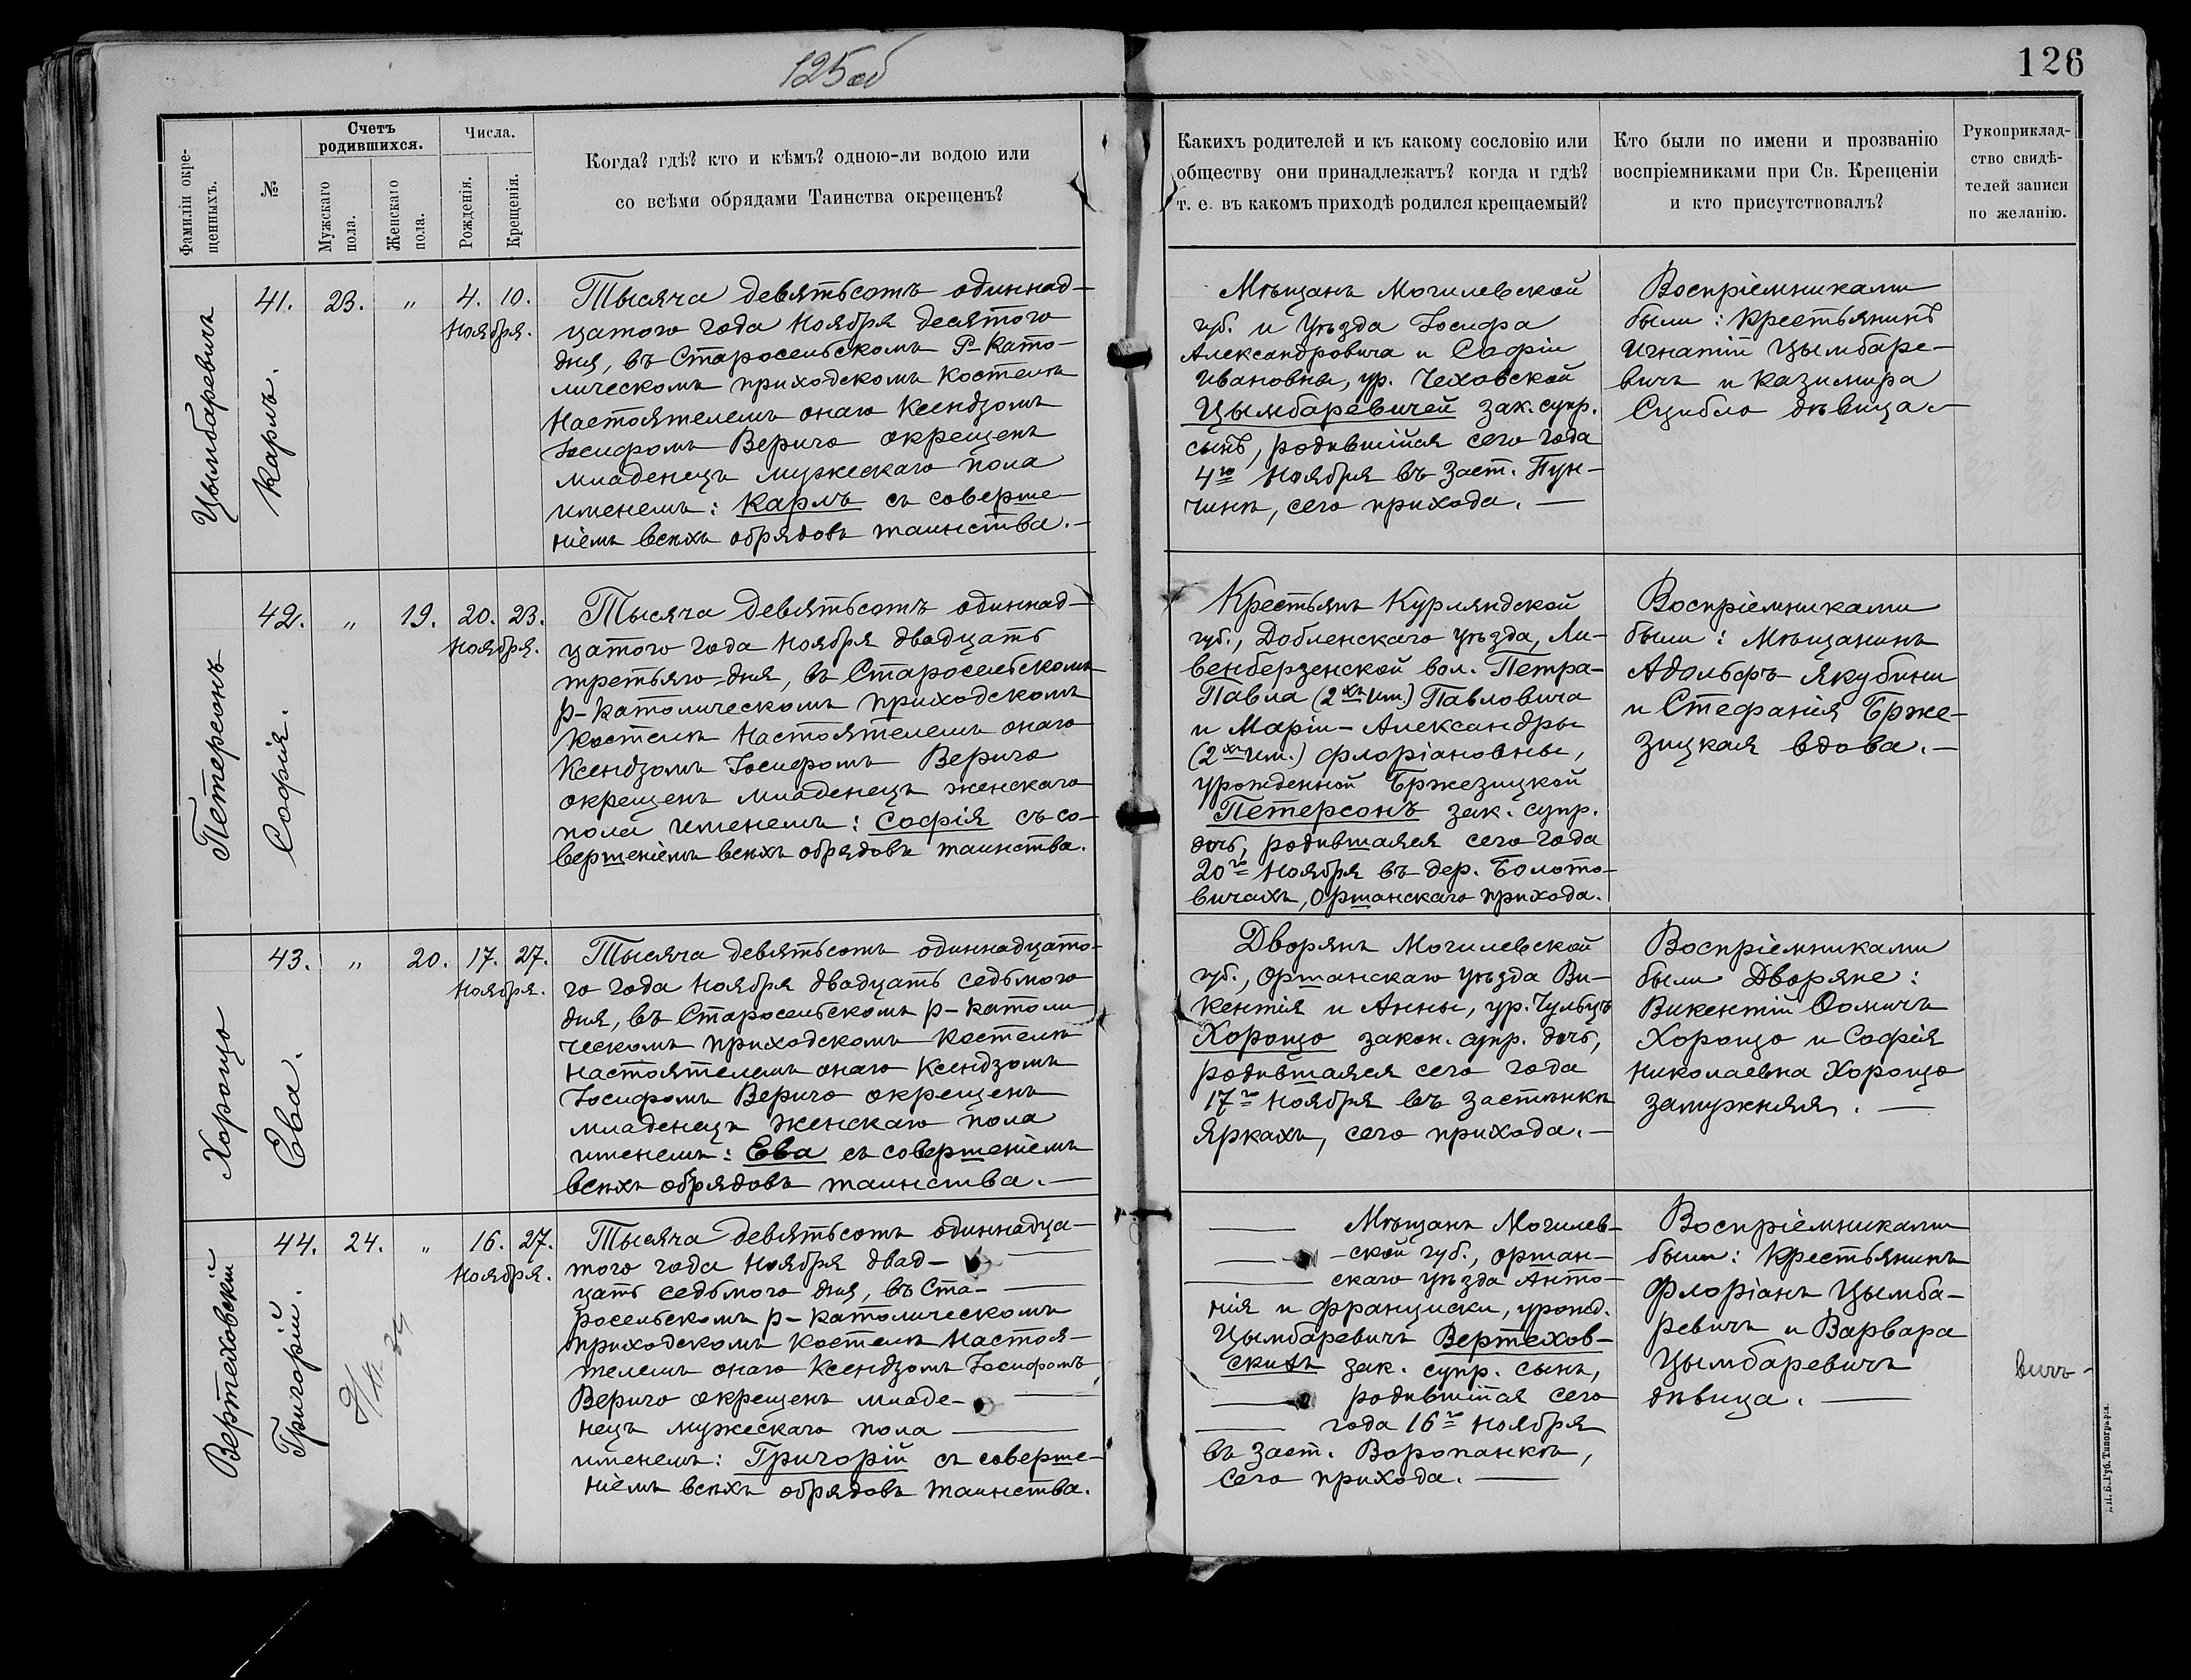 125об
126
Фамиліи окре-
щенныхъ.
№
Счетъ
родившихся.
Мужскаго
пола.
Женскаго
пола.
Числа.
Рожденія.
Крещенія.
Когда? гдѣ? кто и кѣмъ? одною-ли водою или
со всѣми обрядами Таинства окрещенъ?
Какихъ родителей и къ какому сословію или
обществу они принадлежатъ? когда и гдѣ?
т. е. въ какомъ приходѣ родился крещаемый?
Кто были по имени и прозванію
воспріемниками при Св. Крещеніи
и кто присутствовалъ?
Рукоприклад-
ство свидѣ-
телей записи
по желанію.
Цымбаревичъ
41.
Карлъ.
23.
"
4. 10.
Ноября.
Тысяча девятьсотъ одиннад-
цатого года Ноября десятого
дня, въ Старосельскомъ Р-Като-
лическомъ приходскомъ Костелѣ
Настоятелемъ онаго Ксендзомъ
Іосифомъ Верыго окрещенъ
младенецъ мужескаго пола
именемъ: Карлъ съ соверше-
ніемъ всѣхъ обрядовъ таинства.-
Мѣщанъ Могилевской
губ. и уѣзда Іосифа
Александровича и Софіи
Ивановны, ур. Чеховской
Цымбаревичей зак. супр.
сынъ, родившійся сего года
4го Ноября въ заст. Пун-
чинѣ, сего прихода. —
Воспріемниками
были: Крестьянинъ
Игнатій Цымбаре-
вичъ и Казимира
Сцибло дѣвица.-
Петерсонъ
42.
Софія.
"
19.
20. 23.
Ноября.
Тысяча девятьсотъ одиннад-
цатого года Ноября двадцать
третьяго дня, въ Старосельскомъ
р-католическомъ приходскомъ
Костелѣ Настоятелемъ онаго
Ксендзомъ Іосифомъ Верыго
окрещенъ младенецъ женскаго
пола именемъ: Софія съ со-
вершеніемъ всѣхъ обрядовъ таинства.
Крестьянъ Курляндской
губ., Добленскаго уѣзда, Ли-
венберзенской вол. Петра-
Павла (2хъ им.) Павловича
и Маріи-Александры
(2хъ им.) Флоріановны,
урожденной Бржезицкой
Петерсонъ зак. супр.
дочь, родившаяся сего года
20го Ноября въ дер. Болото-
вичахъ, Оршанскаго прихода.
Воспріемниками
были: Мѣщанинъ
Адольфъ Якубини
и Стефанія Брже-
зицкая вдова.-
Хорощо
43.
Ева.
"
20.
17. 27.
Ноября.
Тысяча девятьсотъ одиннадцато-
го года Ноября двадцать седьмого
дня, въ Старосельскомъ р-католи-
ческомъ приходскомъ Костелѣ
Настоятелемъ онаго Ксендзомъ
Іосифомъ Верыго окрещенъ
младенецъ женскаго пола
именемъ: Ева съ совершеніемъ
всѣхъ обрядовъ таинства.-
Дворянъ Могилевской
губ., Оршанскаго уѣзда Ви-
кентія и Анны, ур. Гульбицъ
Хорощо закон. супр. дочь,
родившаяся сего года
17го Ноября въ застѣнкѣ
Яркахъ, сего прихода.-
Воспріемниками
были Дворяне:
Викентій Ѳомичъ
Хорощо и Софія
Николаевна Хорощо
замужняя. —
Вертеховскій
44.
Григорій.
24.
"
16. 27.
Ноября.
Тысяча девятьсотъ одиннадца-
того года Ноября двад-
цать седьмого дня, въ Ста-
росельскомъ р-католическомъ
приходскомъ Костелѣ Настоя-
телемъ онаго Ксендзомъ Іосифомъ
Верыго окрещенъ младе-
нецъ мужескаго пола
именемъ: Григорій съ соверше-
ніемъ всѣхъ обрядовъ таинства.
Мѣщанъ Могилев-
ской губ., Оршан-
скаго уѣзда Анто-
нія и Франциски, урожд.
Цымбаревичъ Вертехов-
скихъ зак. супр. сынъ,
родившійся сего
года 16го Ноября
въ заст. Воропанкѣ,
сего прихода. —
Воспріемниками
были: Крестьянинъ
Флоріанъ Цымба-
ревичъ и Варвара
Цымбаревичъ
дѣвица. —
Губ. Типографія.